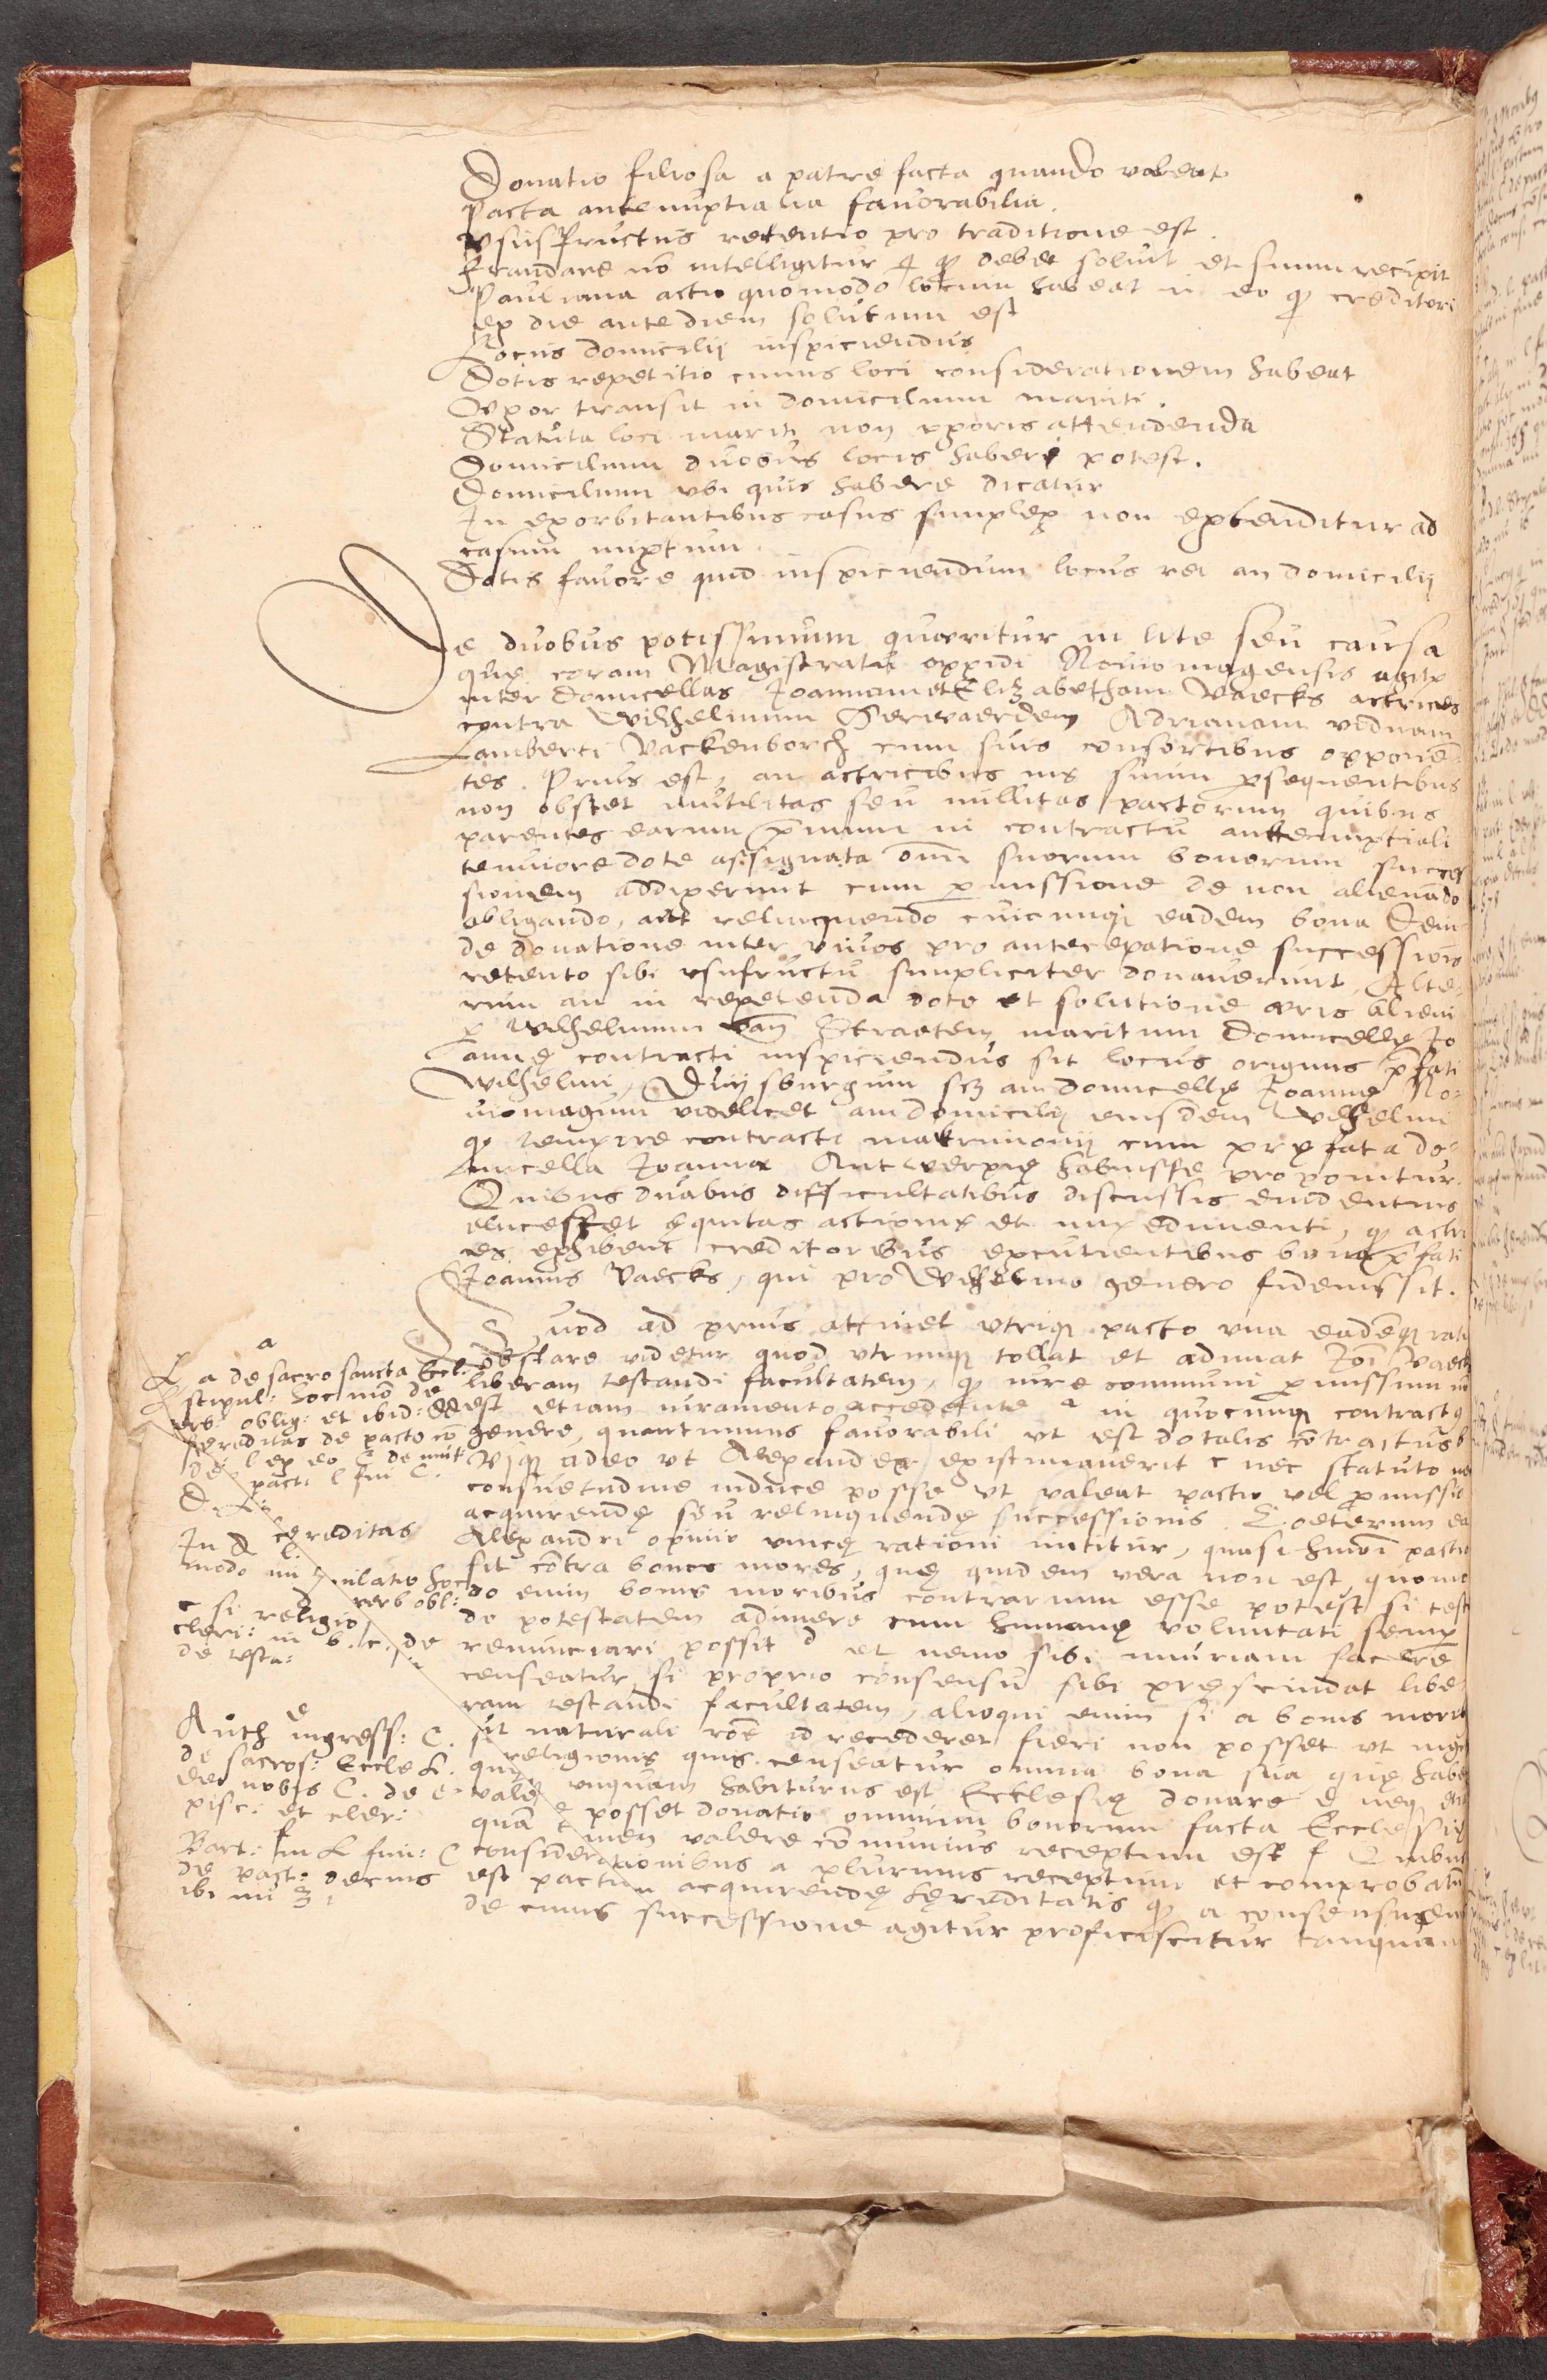 Donatio filiosa a patre facta quando valeat
Pacta antenuptialia favorabilia.
Vsusfructus retentio pro traditione est.
fraudare nō intelligitur q qd debet soluit et suum recipit
Pauliana actio quomodo locum habeat in eo qd creditori
ex die ante diem solutum est
Locus domicilij inspiciendus
Dotis repetitio cuius loci considerationem habeat
Vxor transit in domicilium mariti.
Statuta loci mariti non vxoris attendenda
Domicilium duobus locis haberi potest.
Domicilium vbi quis habere dicatur
In exorbitantibus casus simplex non extenditur ad
casum mixtum.
Dotis favore quid inspiciendum locus rei an domicilij
De duobus potissimum quæritur in lite seu causa
quę coram Magistratu oppidi Noviomagensis agitr
inter domicellas Joannam et Elizabetham Vaecks actrices
contra Wilhelmum Adrianam viduam
Lamberti Vackenborch cum suis consortibus opponē
tes. Prius est, an actricibus ius suum psequentibus
non obstet inutilitas seu nullitas pactorum quibus
parentes earum primum in contractu antenuptiali
tenuiore dote assignata omni suorum bonorum succes
sionem addixerunt cum pmissione de non alienādo
obligando, aut relinquendo cuicunqȝ eadem bona Dein
de donatione inter viuos pro antecepatione successiōis
retento sibi vsufructu simpliciter donauerunt, Alte-
rum an in repetenda dote et solutione æris alieni
p Wilhelmum van Straeten maritum domicellę Jo
annę contracti inspiciendus sit locus originis pfati
Wilhelmi, Duysburgum scȝ an domicellę Joannę No-
uiomagum videlicet an domicilij eiusdem Wilhelmi
qd tempore contracti matrimonij cum pręfata do-
micella Joanna Antwerpię habuisse proponitur.
Quibus duabus difficultatibus discussis euidentius
elucesset ęquitas actionis et impedimenti, qd actri
ces exhibent creditoribus excutientibus bona pfati
Joannis Vaecks, qui pro Wilhelmo genero fideiussit.
Quod ad prius attinet vtriqȝ pacto vna eadēqȝ rati
obstare videtur quod vtrunqȝ tollat et adimat Joi Vaecks
liberam testandi facultatem, qd iure communi pmissum nō
est etiam iuramento accedente a in quocunqȝ contractꝯ
genere, quantumuis favorabili vt est dotalis cōtractus b
Vsqȝ adeo vt Alexander existimauerit c nec statuto ne
consuetudine induce posse vt valeat pactio vel pmissio
acquirendę seu relinquendę successionis. Coeterum ea
Alexandri opinio vnicę rationi innititur, quasi hmōi pactio
sit cōtra bonos mores, quę quidem vera non est, quomo
do enim bonis moribus contrarium esse potest si test
do potestatem adimere cum humanę voluntati semp
renunciari possit d et nemo sibi iniuriam facere
censeatur, si proprio consensu sibi prescindat libe
ram testandi facultatem, alioqui enim si a bonis morib
ut naturali rōe id recederet fieri non posset vt ingr
religionis quis censeatur omnia bona sua quę habe
vnquam habiturus est Ecclesię donare e neqȝ eti
posset donatio omnium bonorum facta Ecclesię
quā tamen valere cōmunius receptum est f Quibus
considerationibus a plurimis receptum et comprobatū
est pactum acquirendę hęreditatis qd a consensu eius
de cuius successione agitur proficiscitur tanquam
a
L a de sacrosancta Eccl.
L stipul: hoc modo de
verb oblig: et ibid:
hereditas de pactis cō
de l ex eo C. de inut
pact: l fin C.
In l hereditas
modo in stipulatio hoc
d verb obl:
c si religio
cleri: in 6. c. de
de testa:
e
Auth ingressi: C.
de sacros: Eccle L.
de nobis C. de e-
pisc: et cler:
f
Bart: in L fin: C
de pact: decius
ibi nu 3.